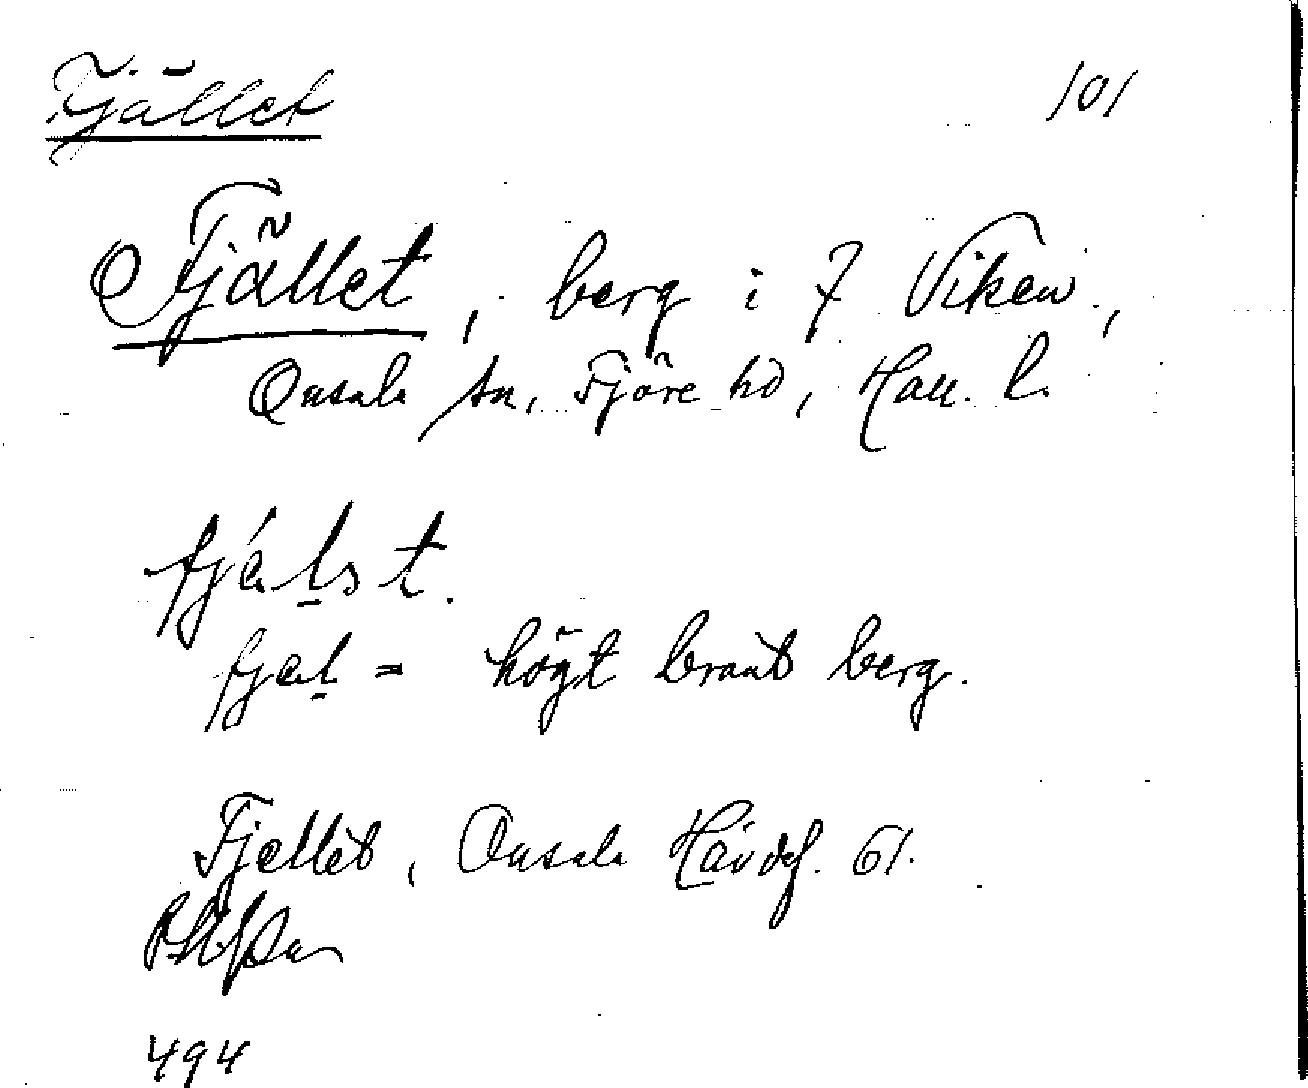 Fjället 101
Fjället, berg i 7 Viken,
Onsala sn, Fjäre hd, Hall. l.
fjälst.
fjäl = högt brant berg.
Fjellet, Onsala Hävdef. 61.
494